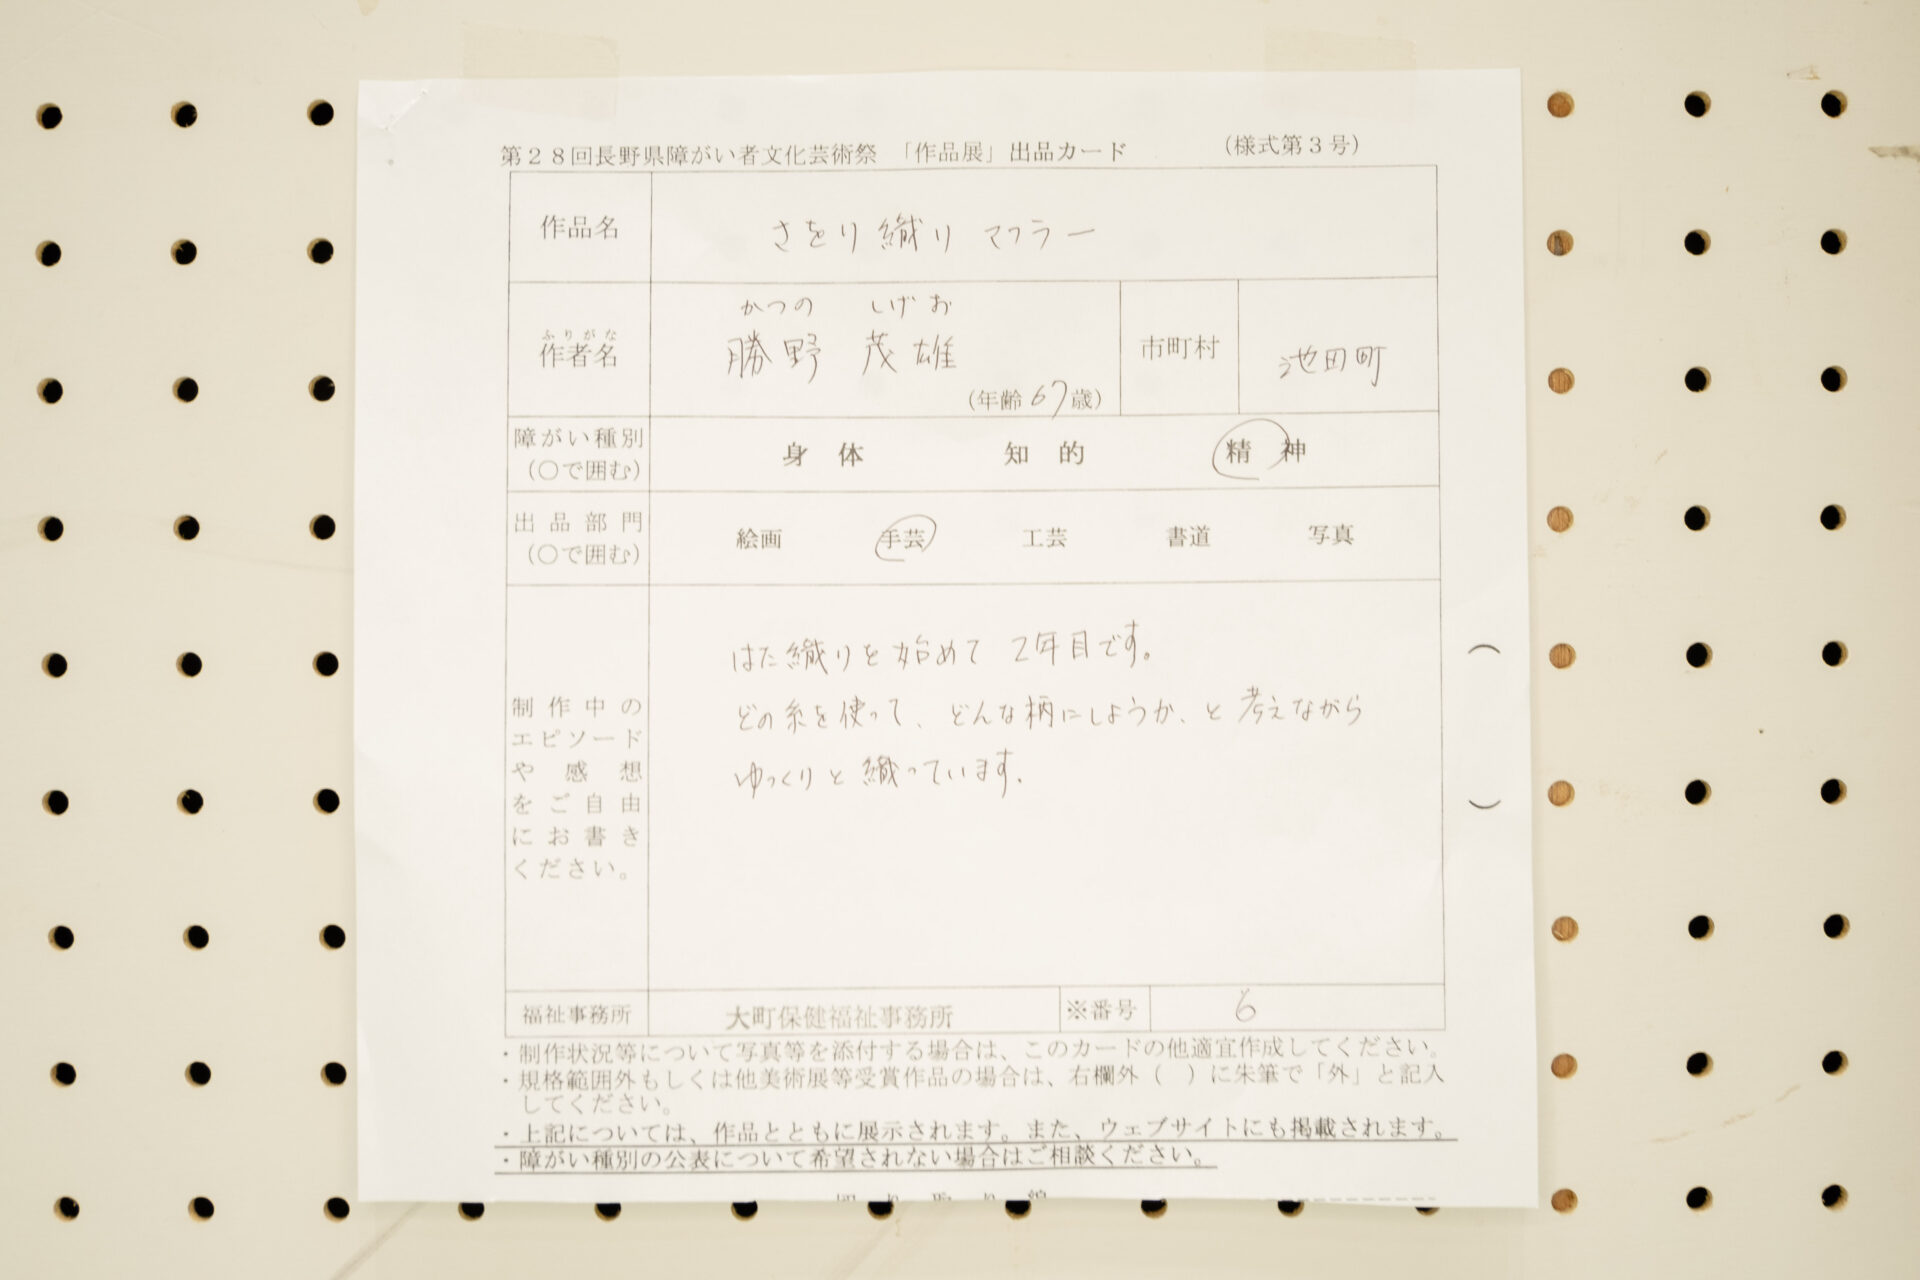 第28回長野県障がい者文化芸術祭 「作品展」出品カード (様式第3号)
作品名 さをり織り マフラー
ふりがな かつの しげお
作者名 勝野 茂雄 (年齢 67歳) 市町村 池田町
障がい種別 (○で囲む) 身体 知的 精神
出品部門 (○で囲む) 絵画 手芸 工芸 書道 写真
制作中の
エピソード
や感想
をご自由
にお書き
ください。
はた織りを始めて 2年目です。
どの糸を使って、どんな柄にしようか、と考えながら
ゆっくりと織っています。
( )
福祉事務所 大町保健福祉事務所 ※番号 6
・制作状況等について写真等を添付する場合は、このカードの他適宜作成してください。
・規格範囲外もしくは他美術展等受賞作品の場合は、右欄外( )に朱筆で「外」と記入
してください。
・上記については、作品とともに展示されます。また、ウェブサイトにも掲載されます。
・障がい種別の公表について希望されない場合はご相談ください。